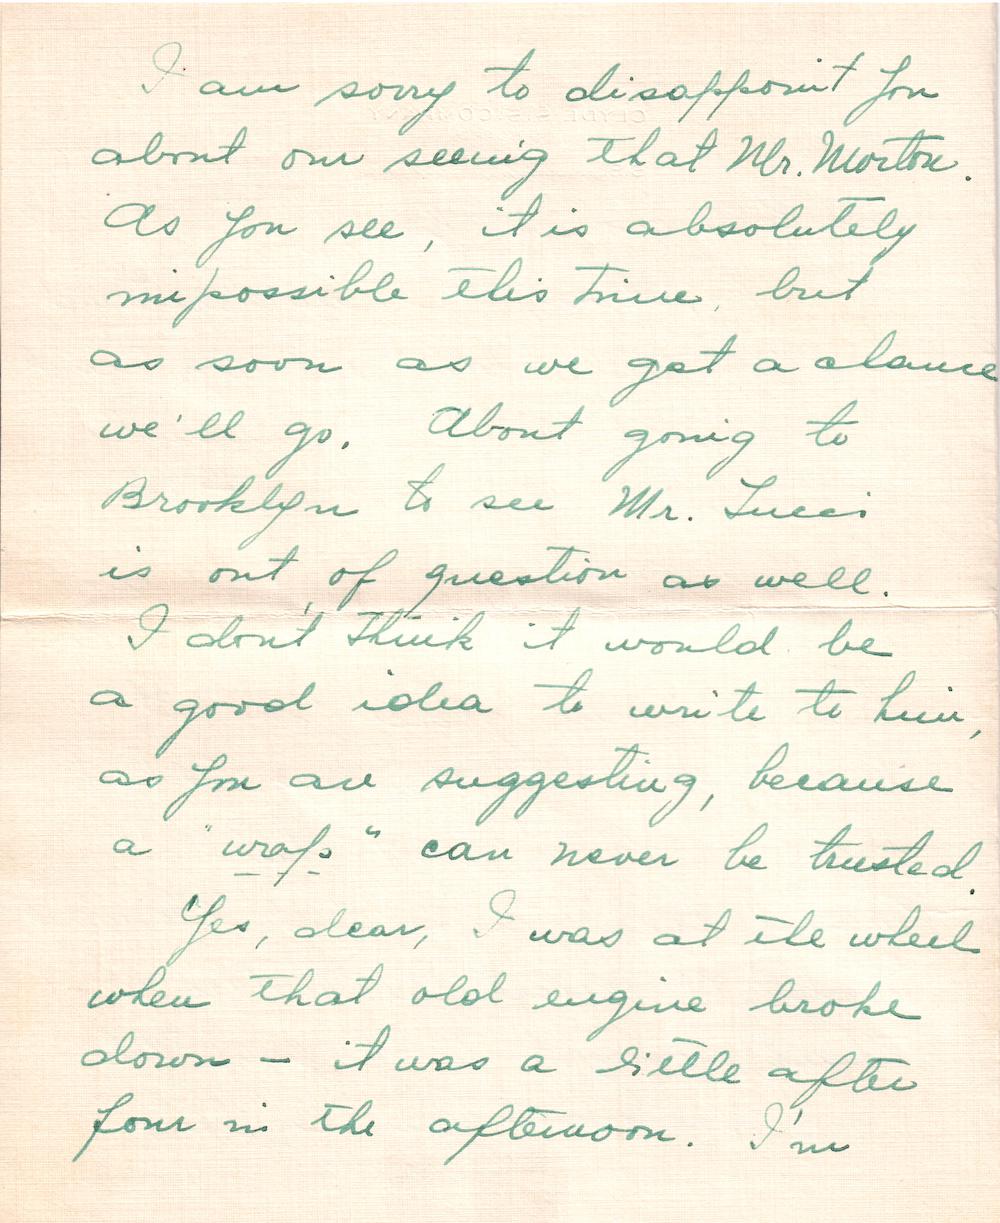 I am sorry to disappoint you
about our seeing that Mr. Morton.
As you see, it is absolutely
impossible this time, but
as soon as we get a chance
we'll go. About going to
Brooklyn to see Mr. Lucci
is out of question as well.
I don't think it would be
a good idea to write to him,
as you are suggesting, because
a "wop" can never be trusted.
Yes, dear, I was at the wheel
when that old engine broke
down – it was a little after
four in the afternoon. I'm